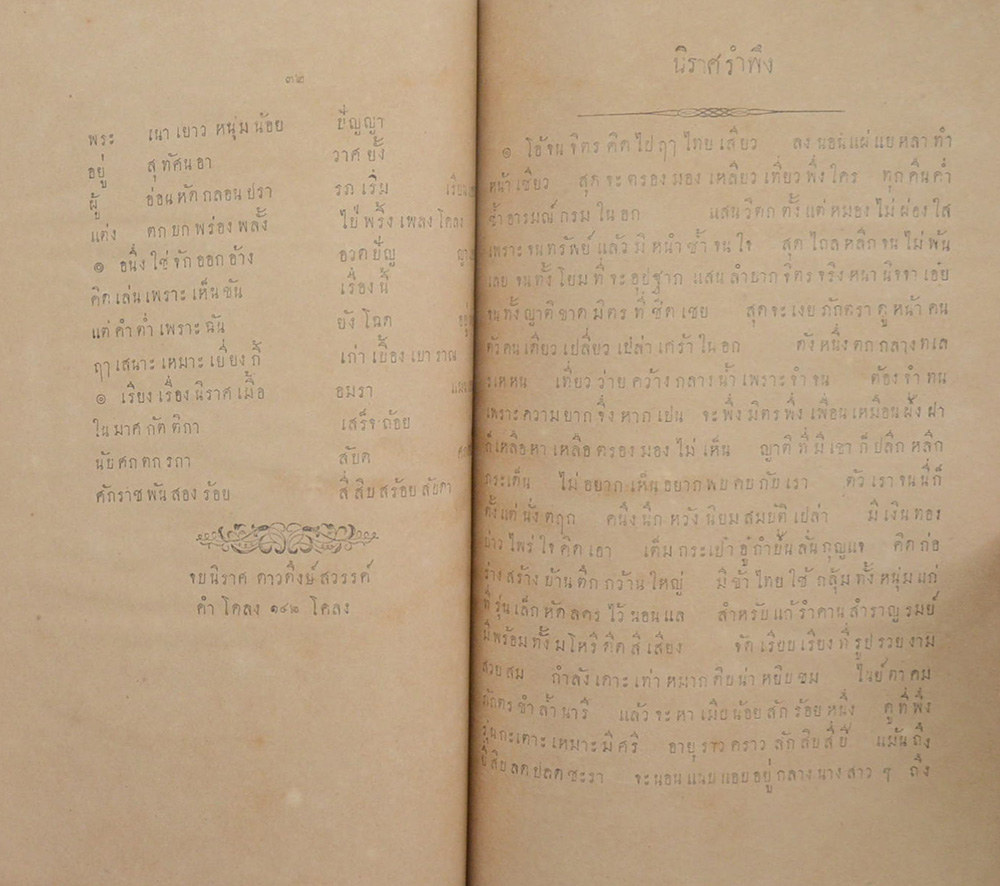 ๓๒
พระ เนา เยาว หนุ่ม น้อย ปัญญา
อยู่ สุ ทัศัน อา วาศ ยั้ง
ผู้ อ่อน หัด กลอน ปรา รภ เริ่ม
แต่ง ตก ยก พร่อง พลั้ง ไป่ พริ้ง เพลง โคลง
๏ อนึ่ง ใช่ จัก ออก อ้าง อวด ปัญ
คิด เล่น เพราะ เห็น ขัน เรื่อง นี้
แต่ คำ ต่ำ เพราะ ฉัน ยัง โฉด
ฤๅ เสนาะ เหมาะ เยี่ยง กี้ เก่า เยื้อง เยา ราณ
๏ เรียง เรื่อง นิราศ เมื้อ อมรา
ใน มาศ กัติ ติกา เสร็จ ถ้อย
นับ ศก ตก รกา สัปด
ศักราช พัน สอง ร้อย สี่ สิบ สร้อย สัปดา
จบ นิราศ ดาวดึงษ์ สวรรค์
คำ โคลง ๑๔๒ โคลง
นิราศ รำพึง
๏ โอ้ จน จิตร คิด ไป ฤๅ ไทย เสียว ลง นอน แผ่ แยหลา ทำ
หน้า เซียว สุด จะ ตรอง มอง เหลียว เที่ยว พึ่ง ใคร ทุก คืน ค่ำ
ช้ำ อารมณ์ กรม ใน อก แสน วิตก ตั้ง แต่ หมอง ไม่ ผ่อง ใส
เพราะ จน ทรัพย์ แล้ว มิ หนำ ซ้ำ จน ใจ สุด ไถล หลีก จน ไม่ พ้น
เลย จน ทั้ง โยม ที่ จะ อุปฐาก แสน ลำบาก จิตร จริง หนา นิจจา เอ๋ย
จน ทั้ง ญาติ ขาด มิตร ที่ ชิด เชย สุด จะ เงย ภักตรา ดู หน้า คน
ตัว คน เดียว เปลี่ยว เปล่า เศร้า ใน อก ดัง หนึ่ง ตก กลาง ทเล
เพราะ ความ ยาก จึ่ง หาก เปน จะ พึ่ง มิตร พึ่ง เพื่อน เหมือน ฝั่ง ฝา
ก็ เหลือ หา เหลือ ตรอง มอง ไม่ เห็น ญาติ ที่ มี เขา ก็ ปลีก หลีก
กระเด็น ไม่ อยาก เห็น อยาก พบ คบ กับ เรา ตัว เรา จน นี้ ก็
ตั้ง แต่ นั่ง ตฤก คนึง นึก หวัง นิยม สมบัติ เปล่า มี เงิน ทอง
บ่าว ไพร่ ใจ คิด เอา เต็ม กระเป๋า อู๋ กำปั่น ลั่น กุญแจ คิด ก่อ
ร่าง สร้าง บ้าน ตึก กว้าน ใหญ่ มี ข้า ไทย ใช้ กลุ้ม ทั้ง หนุ่ม แก่
ที่ รุ่น เล็ก หัด ลคร ไว้ นอน แล สำหรับ แก้ รำคาน สำราญ รมย์
มี พร้อม ทั้ง มโหรี ดีด สี เสียง จัด เรียบ เรียง ที่ รูป รวย งาม
สวย สม กำลัง เดาะ เท่า หมาก ดิบ น่า หยิบ ชม
ภักตร ขำ ล้ำ นารี แล้ว จะ หา เมีย น้อย สัก ร้อย หนึ่ง ดู ที่ พึ่ง
รุ่น กะเตาะ เหมาะ มี ศรี อายุ ราว คราว สัก สิบ สี่ ปี แม้น ถึง
ยี่ สิบ ลด ปลด ชะรา จะ นอน แนบ แอบ อยู่ กลาง นาง สาว ๆ ถึง